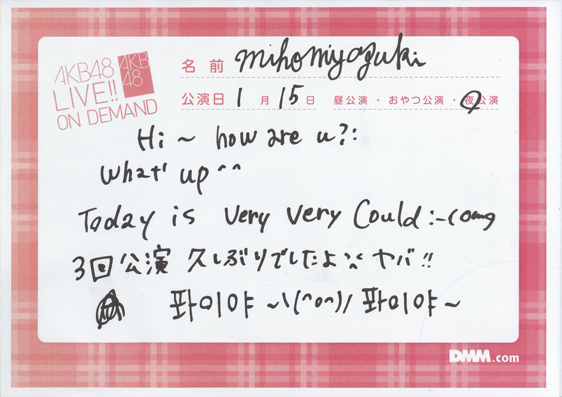 AKB48
LIVE!!
ON DEMAND
AKB
48
名前 miho miyazaki
公演日 1月15日 昼公演・おやつ公演・夜公演
Hi ~ how are u?:
What' up ^^
Today is very very Could :-( omg
3回公演 久しぶりでしたよ ヤバ!!
파이야 ~\(^o^)/ 파이야~
DMM.com